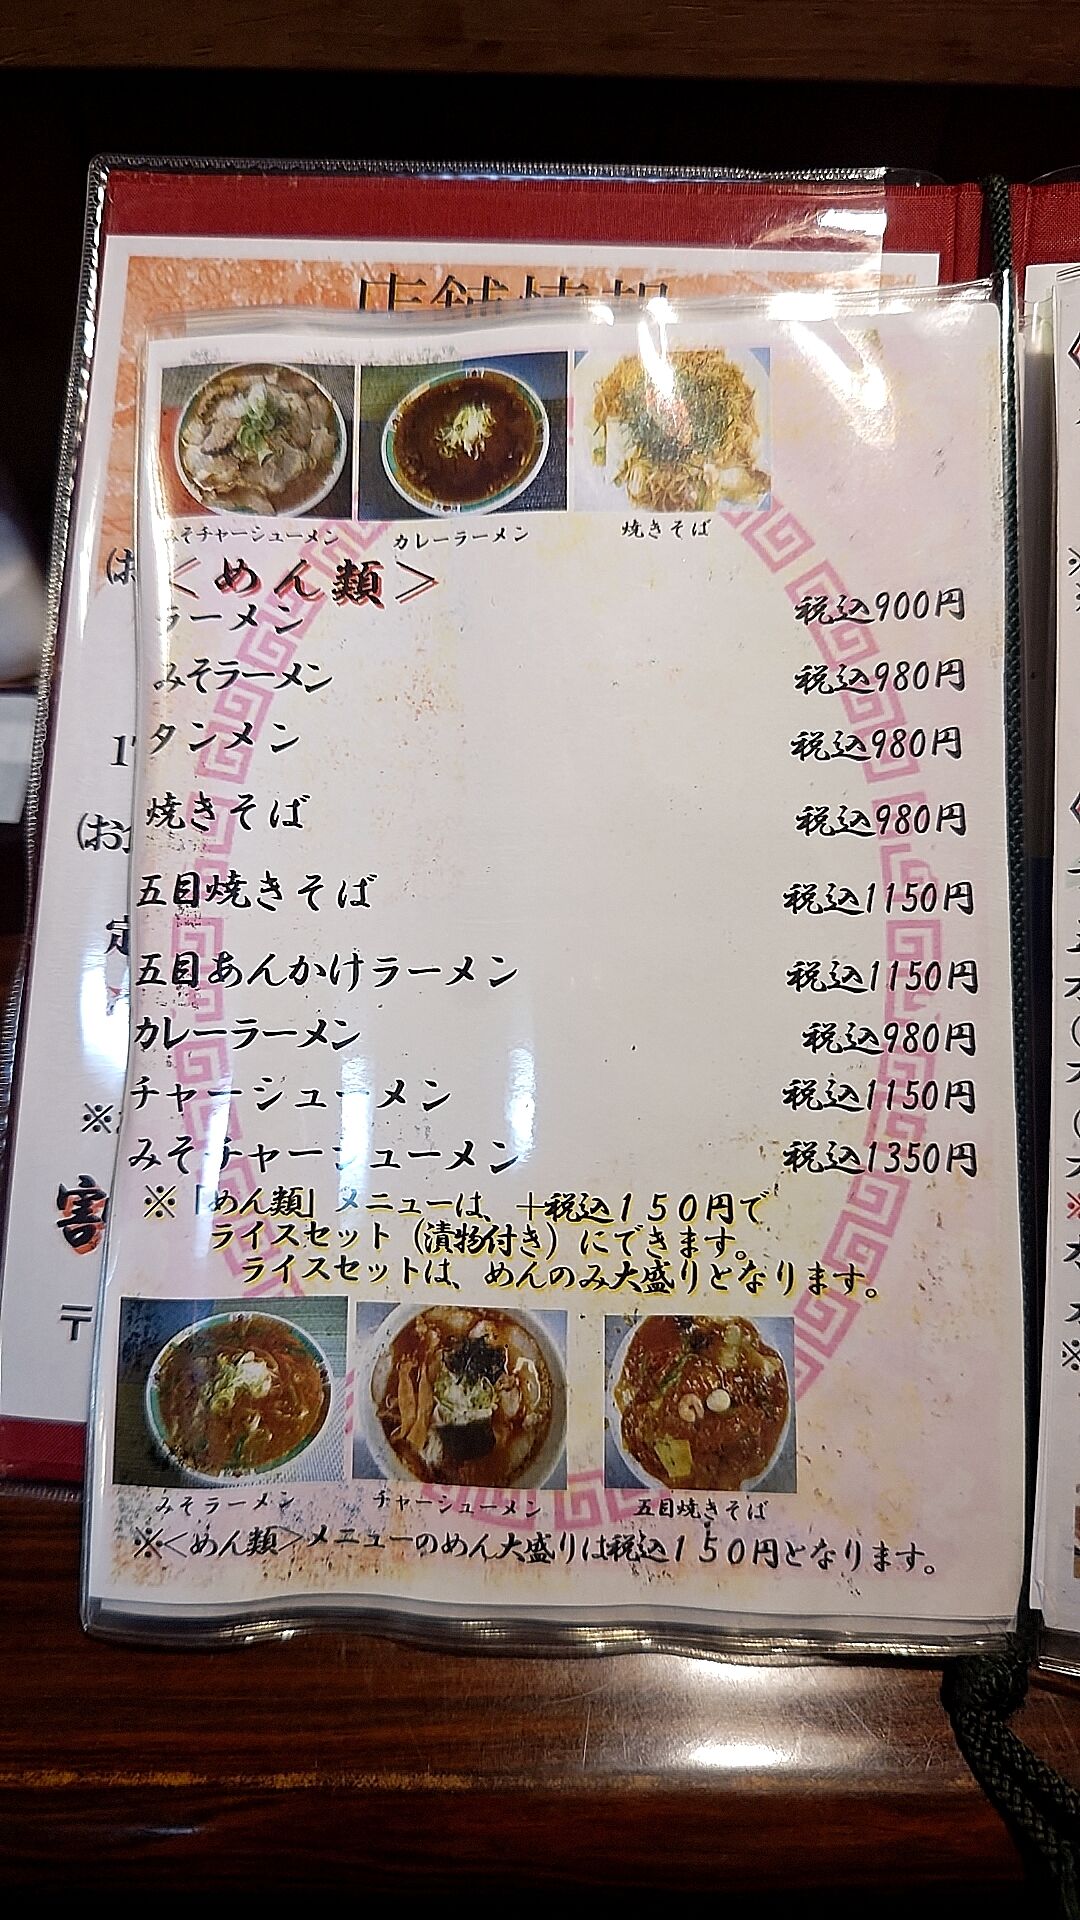 店舗情報
みそチャーシューメン
カレーラーメン
焼きそば
<めん類>
ラーメン 税込900円
みそラーメン 税込980円
タンメン 税込980円
焼きそば 税込980円
五目焼きそば 税込1150円
五目あんかけラーメン 税込1150円
カレーラーメン 税込980円
チャーシューメン 税込1150円
みそチャーシューメン 税込1350円
※「めん類」メニューは、+税込150円で
ライスセット(漬物付き)にできます。
ライスセットは、めんのみ大盛りとなります。
みそラーメン
チャーシューメン
五目焼きそば
※<めん類>メニューのめん大盛りは税込150円となります。
割
〒